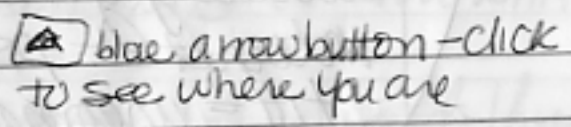 blue arrow button - click
to see where you are